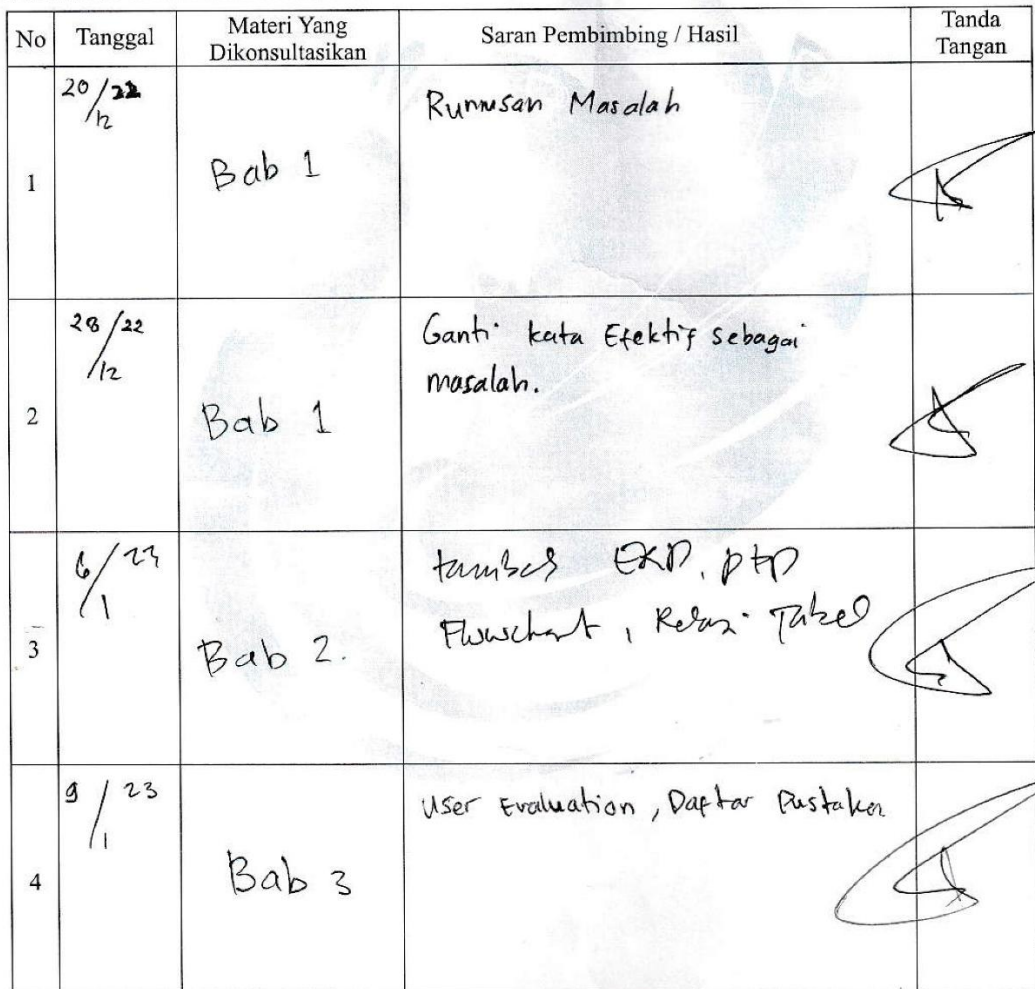 No Tanggal Materi Yang Dikonsultasikan Saran Pembimbing / Hasil Tanda Tangan
1 20/22/12 Bab 1 Rumusan Masalah
2 28/22/12 Bab 1 Ganti kata Efektif sebagai
masalah.
3 6/23/1 Bab 2. tambah ERD,
Flowchart, Relasi Tabel
4 9/23/1 Bab 3 User Evaluation, Daftar Pustaka